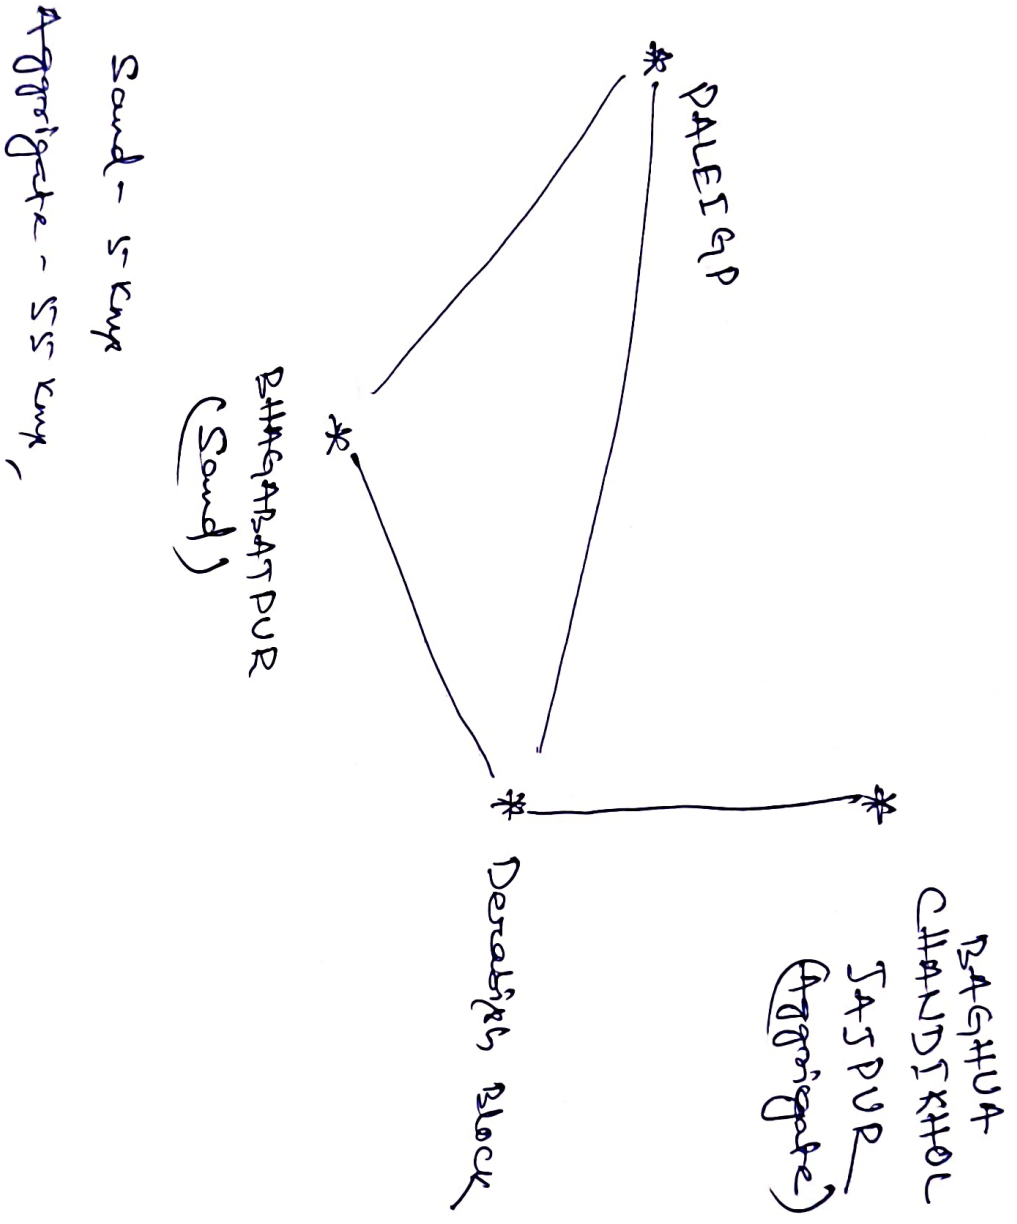 BAGHUA
CHANDIKHOL
JAJPUR
(Aggrigate)
PALEI GP
Derabish Block
BHAGABATPUR
(Sand)
Sand - 5 Kms
Aggrigate - 55 Kms,